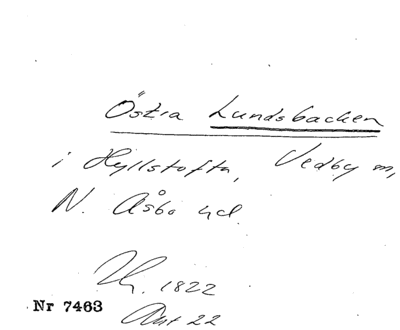 Östra Lundsbacken
i Hyllstofta, Vedby sn,
N. Åsbo hd.
1822
Nr 7463
Akt 22